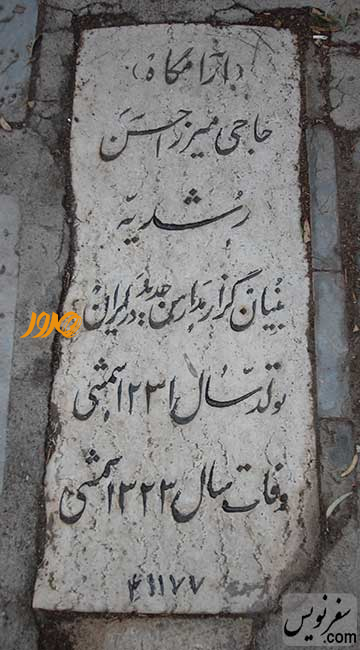 (آرامگاه)
حاجی میرزا حسن
رشدیه
بنیان گزار مدارس جدید در ایران
تولد سال ۱۲۳۱ شمسی
وفات سال ۱۳۲۳ شمسی
۴۱۱۷۷
سفرنویس
.com